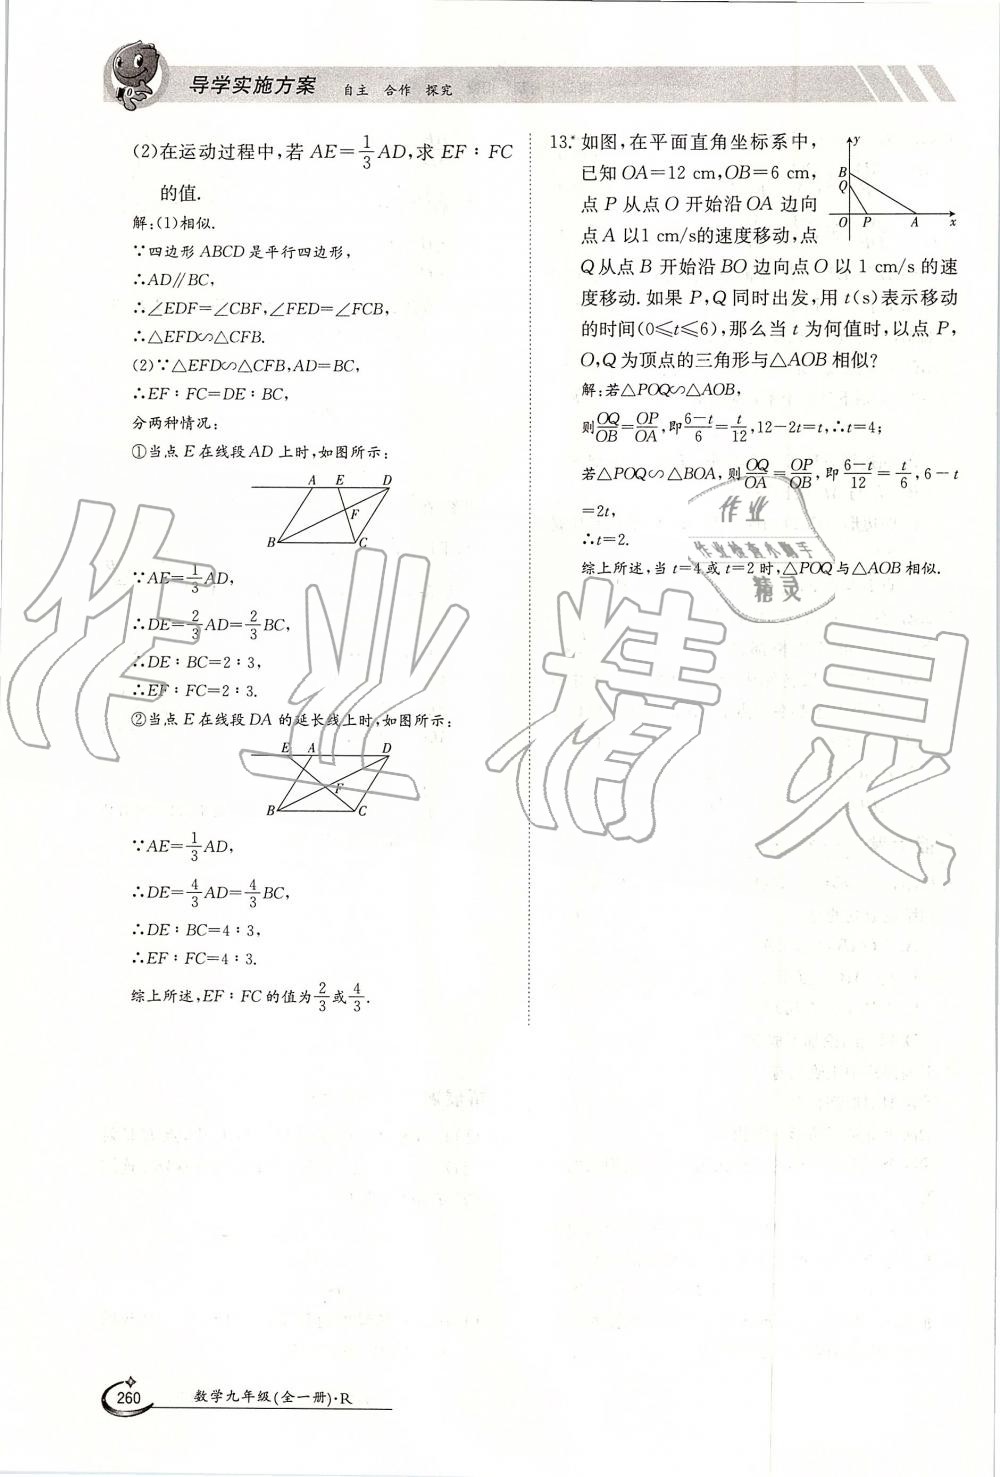 导学实施方案 自主 合作 探究
(2)在运动过程中,若 AE=1/3AD,求 EF∶FC
的值.
解:(1)相似.
∵四边形 ABCD 是平行四边形,
∴AD∥BC,
∴∠EDF=∠CBF,∠FED=∠FCB,
∴△EFD∽△CFB.
(2)∵△EFD∽△CFB,AD=BC,
∴EF∶FC=DE∶BC,
分两种情况:
①当点 E 在线段 AD 上时,如图所示:
A E D
F
B C
∵AE=1/3AD,
∴DE=2/3AD=2/3BC,
∴DE∶BC=2∶3,
∴EF∶FC=2∶3.
②当点 E 在线段 DA 的延长线上时,如图所示:
E A D
F
B C
∵AE=1/3AD,
∴DE=4/3AD=4/3BC,
∴DE∶BC=4∶3,
∴EF∶FC=4∶3.
综上所述,EF∶FC 的值为2/3或4/3.
13.* 如图,在平面直角坐标系中,
已知 OA=12 cm,OB=6 cm,
点 P 从点 O 开始沿 OA 边向
点 A 以1 cm/s的速度移动,点
Q 从点 B 开始沿 BO 边向点 O 以 1 cm/s 的速
度移动.如果 P,Q 同时出发,用 t(s)表示移动
的时间(0≤t≤6),那么当 t 为何值时,以点 P,
O,Q 为顶点的三角形与△AOB 相似?
y
B
Q
O P A x
解:若△POQ∽△AOB,
则OQ/OB=OP/OA,即6-t/6=t/12,12-2t=t,∴t=4;
若△POQ∽△BOA,则OQ/OA=OP/OB,即6-t/12=t/6,6-t
=2t,
∴t=2.
综上所述,当 t=4 或 t=2 时,△POQ 与△AOB 相似.
作业
作业检查小助手
精灵
作业精灵
260 数学九年级(全一册)·R